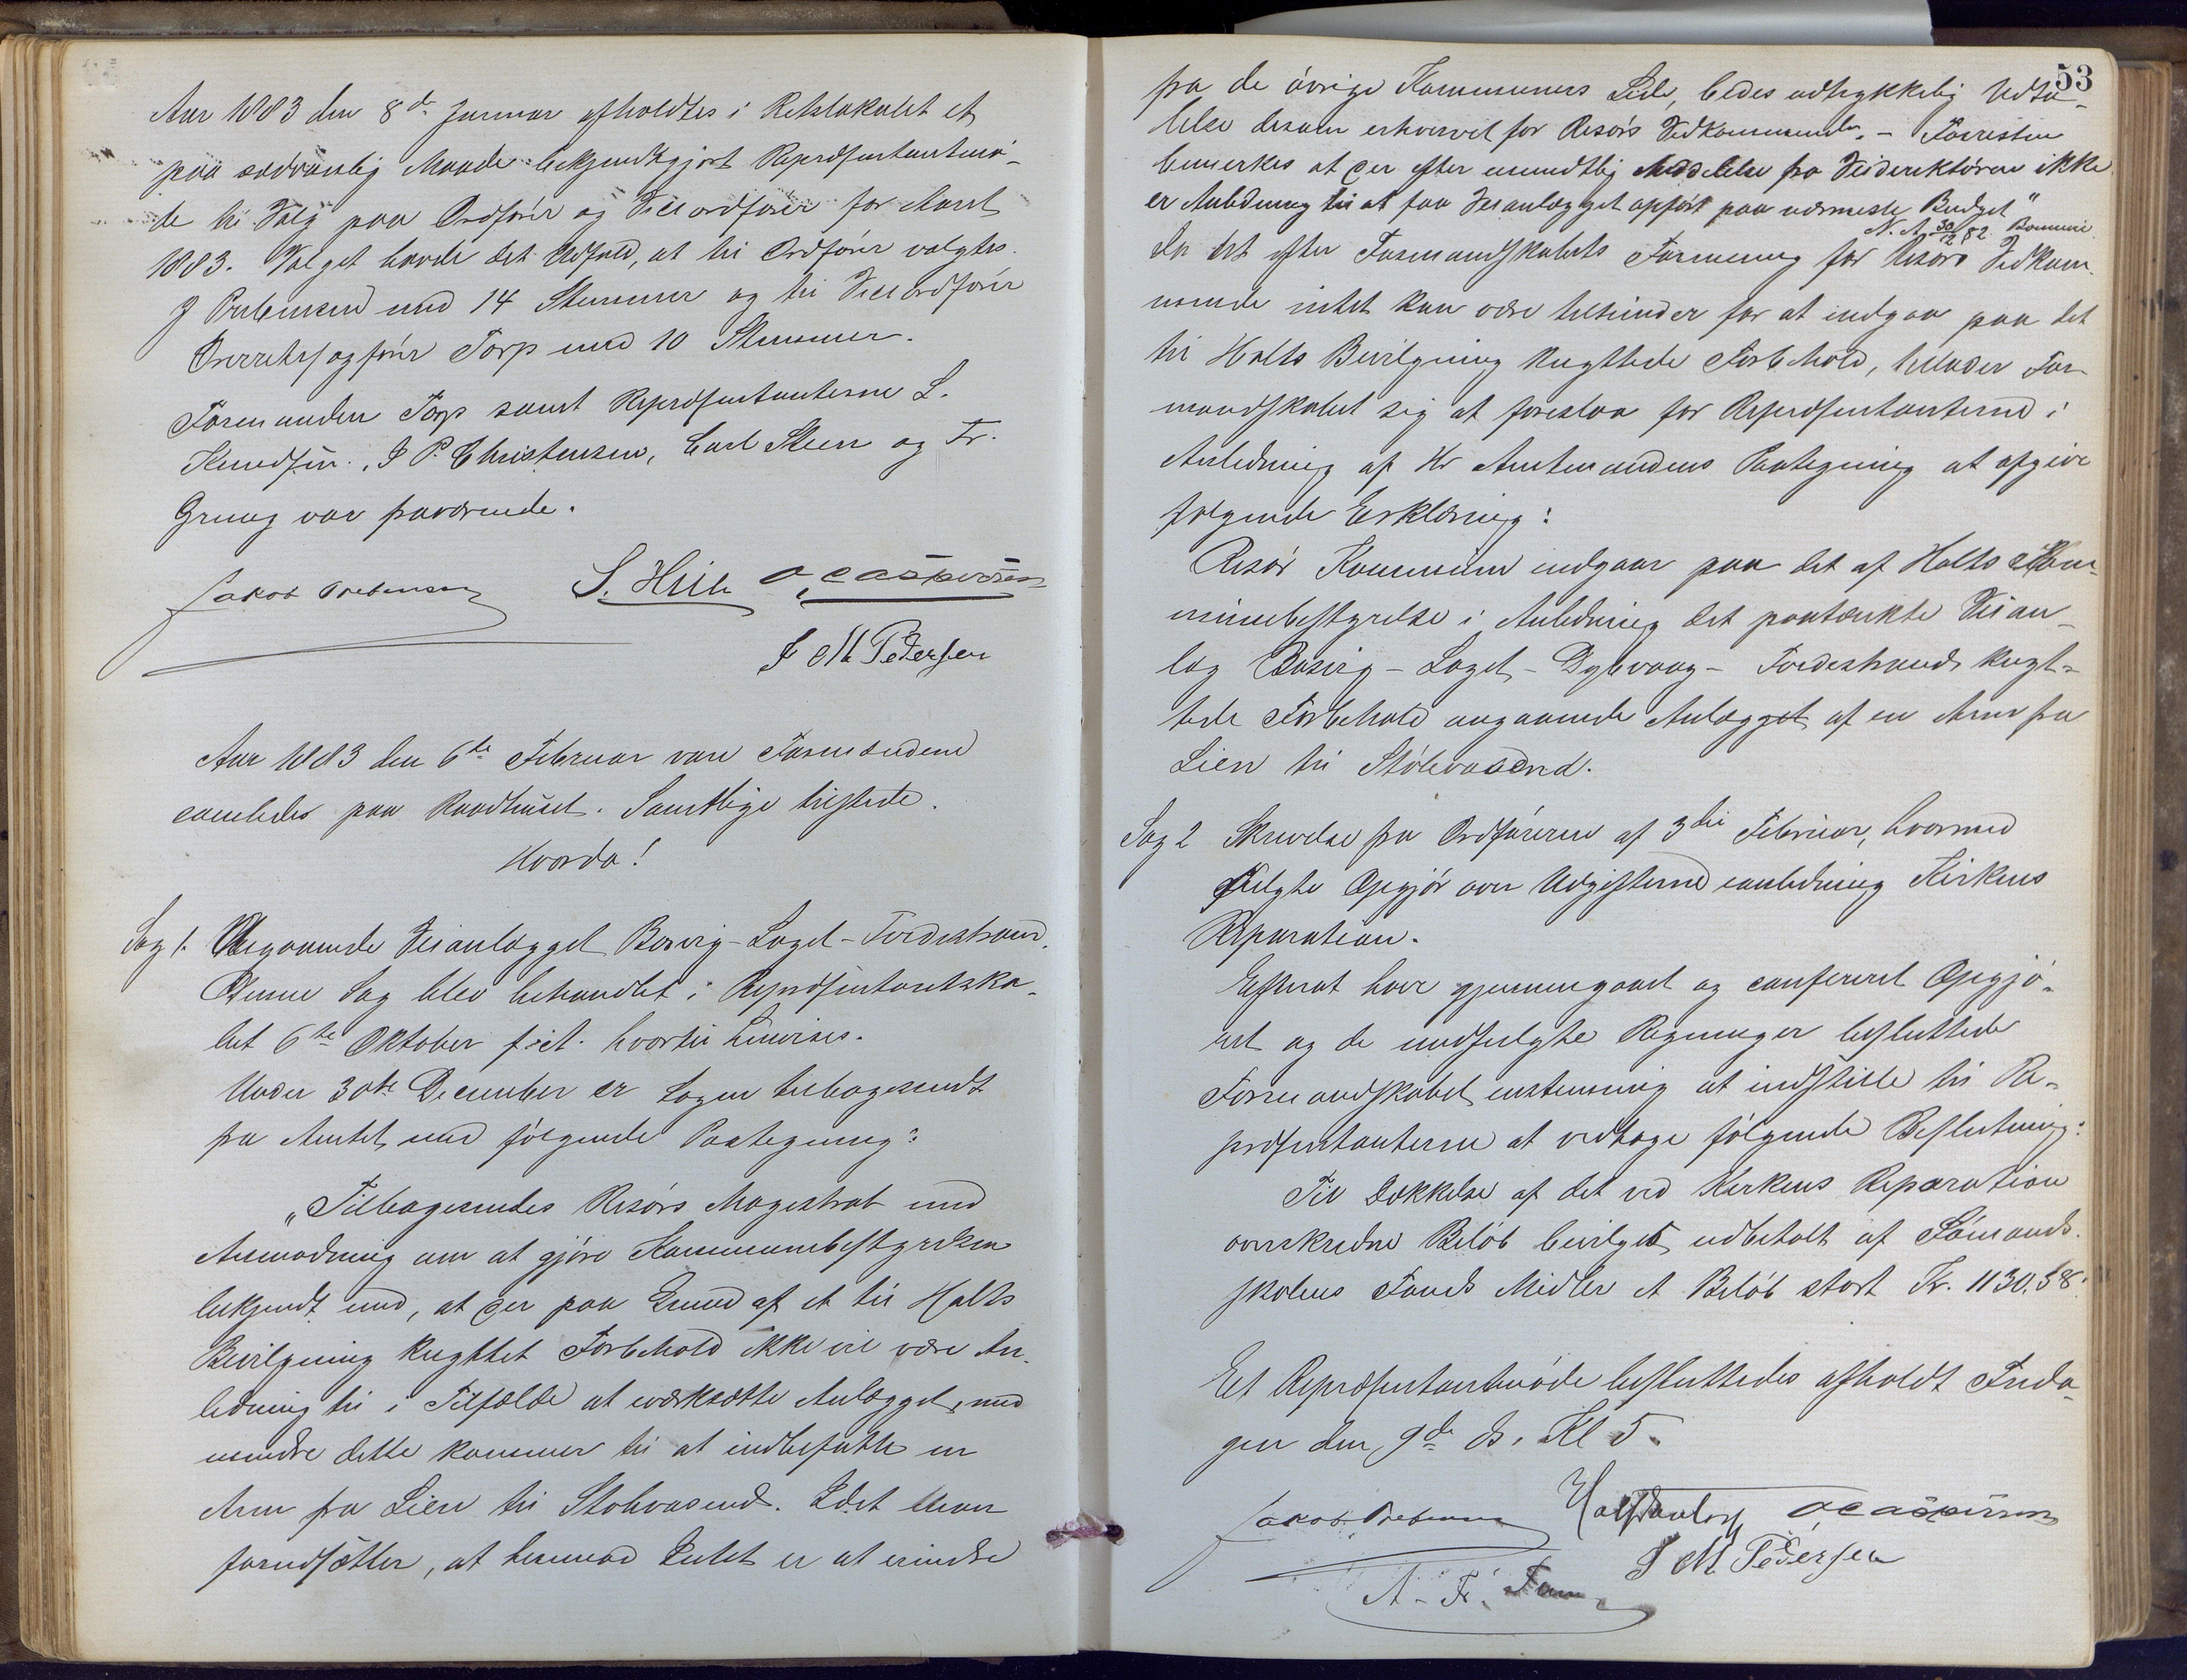 Aar 1883 den 8de Januar afholdtes i Retslokalet et
paa sædvanlig Maade bekjendtgjort Repræsentantmö-
de til Valg paa Ordförer og Viceordförer for Aaret
1883. Valget havde det Udfald, at til Ordförer valgtes
J Prebensen med 14 Stemmer og til Viceordförer
Overretssagförer Torp med 10 Stemmer.
Formanden Torp samt Repræsentanterne L.
Knudsen, J P. Christensen, Carl Steen og Fr.
Grung var fraværende.
Jakob Prebensen S. Hiile O Caspersen
J M Pedersen
Aar 1883 den 6te Februar vare Formændene
samledes paa Raadhuset. Samtlige tilstede.
Hvorda!
Sag 1. Angaaende Veianlægget Bosvig-Laget-Tvedestrand.
Denne Sag blev behandlet i Repræsentantska-
bet 6te Oktober f. A. hvortil henvises.
Under 30te December er Sagen tilbagesendt
fra Amtet med følgende Paategning:
„Tilbagesendes Risörs Magistrat med
Anmodning om at gjöre Kommunebestyrelsen
bekjendt med, at der paa Grund af et til Holts
Bevilgning knyttet Forbehold ikke vil være An-
ledning til i Tilfælde at iværksætte Anlægget, med
mindre dette kommer til at indbefatte en
Arm fra Lien til Stölevasend. Idet man
forudsætter, at hermod Intet er at erindre
53
fra de övrige Kommuners Side, bedes udtrykkelig Udta-
lelse desom erhvervet for Risörs Vedkommende. – Forresten
bemerkes at der efter mundtlig Meddelelse fra Veidirektören ikke
er Anledning til at faa Veianlægget opfört paa nærmeste Budget"
N. A. 30/12 82.
Da det efter Formandskabets Formening for Risörs Vedkom-
mende intet kan være tilhinder for at indgaa paa det
til Holts Bevilgning knyttede Forbehold, tillader For-
mandskabet sig at foreslaa for Repræsentanterne i
Anledning af Hr Amtmandens Paategning at afgive
følgende Erklæring:
Risör Kommune indgaar paa det af Holts Kom-
munebestyrelse i Anledning det paatænkte Veian-
læg Bosvig-Laget-Dybvaag-Tvedestrand knyt-
tede Forbehold angaaende Anlægget af en Arm fra
Lien til Stölevasend.
Sag 2 Skrivelse fra Ordföreren af 3die Februar, hvormed
fulgte Opgjör over Udgifterne i anledning Kirkens
Reparation.
Efterat have gjennemgaaet og confereret Opgjö-
ret og de medfulgte Regninger besluttede
Formandskabet enstemmig at indstille til Re-
præsentanterne at vedtage følgende Beslutning:
Til Dækkelse af det ved Kirkens Reparation
overskredne Belöb bevilges udbetalt af Sömands-
skolens Fonds Midler et Belöb stort Kr. 1130.58.
Et Repræsentantmöde besluttedes afholdt Freda-
gen den 9de ds. Kl 5.
Jakob Prebensen O Caspersen
J M Pedersen
A. F.